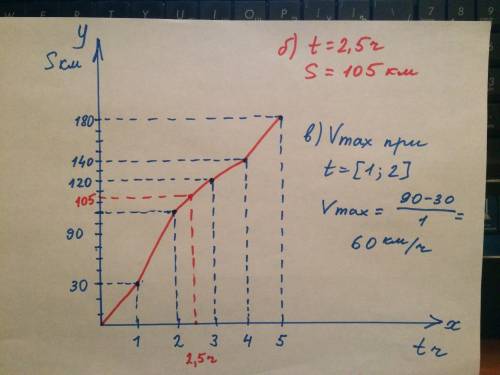 y
S км
180
140
120
105
90
30
1 2 3 4 5
2,5ч
x
t ч
б) t = 2,5 ч
S = 105 км
в) Vmax при
t = [1; 2]
Vmax = 90-30 / 1 =
60 км/ч